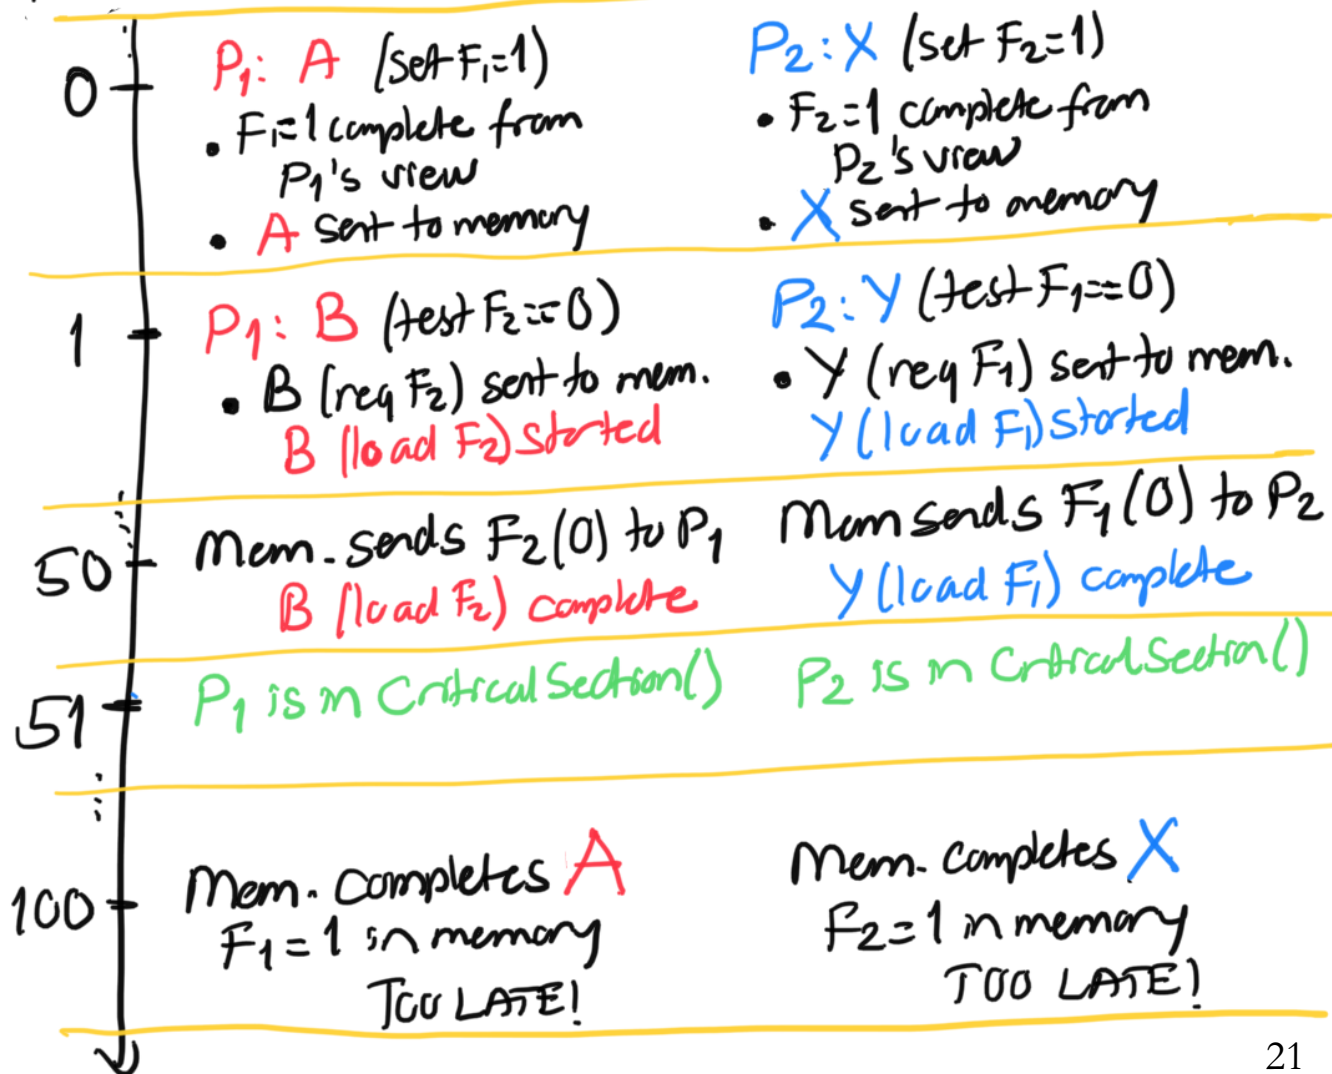 0
P₁: A (set F₁=1)
• F₁=1 complete from
P₁'s view
• A sent to memory
P₂: X (set F₂=1)
• F₂=1 complete from
P₂'s view
• X sent to memory
1
P₁: B (test F₂==0)
• B (req F₂) sent to mem.
B (load F₂) started
P₂: Y (test F₁==0)
• Y (req F₁) sent to mem.
Y (load F₁) started
50
Mem. sends F₂(0) to P₁
B (load F₂) complete
Mem sends F₁(0) to P₂
Y (load F₁) complete
51
P₁ is in CriticalSection()
P₂ is in CriticalSection()
100
Mem. completes A
F₁=1 in memory
TOO LATE!
Mem. completes X
F₂=1 in memory
TOO LATE!
21